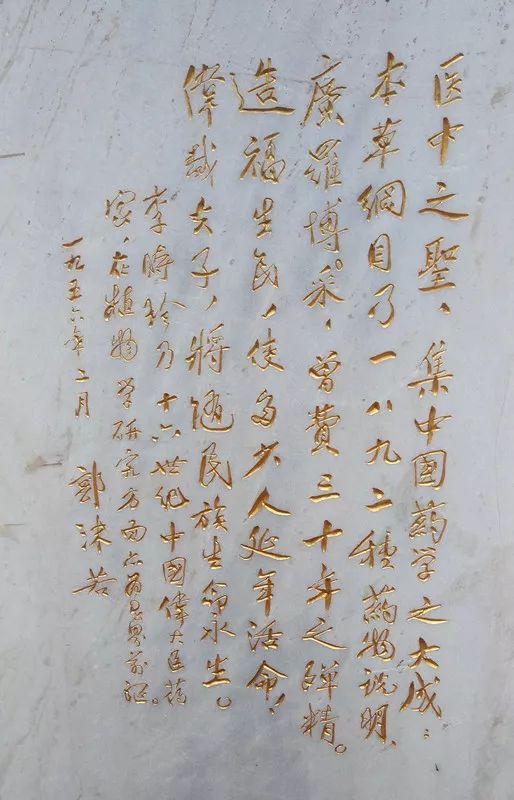 医中之聖、集中國药学之大成、
本草綱目乃一八九二種药物说明、
廣羅博采、曾費三十年之殫精。
造福生民、使多少人延年活命！
偉哉夫子、將随民族生命永生。
李時珍乃十六世纪中國偉大医药
家、在植物学研究方面亦为世界前驱。
一九五六年二月 郭沫若